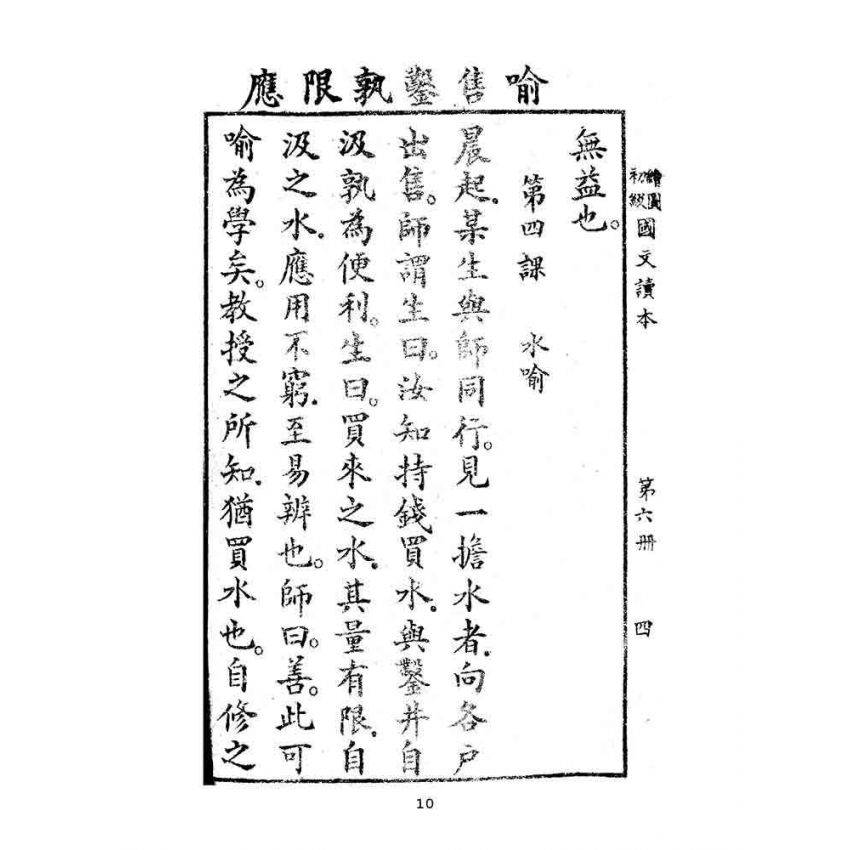 繪圖初級國文讀本 第六冊 四
喻售鑿孰限應
無益也。
第四課 水喻
晨起.某生與師同行。見一擔水者.向各戶
出售。師謂生曰。汝知持錢買水.與鑿井自
汲孰為便利。生曰。買來之水.其量有限.自
汲之水.應用不窮.至易辨也。師曰。善。此可
喻為學矣。教授之所知.猶買水也。自修之
10